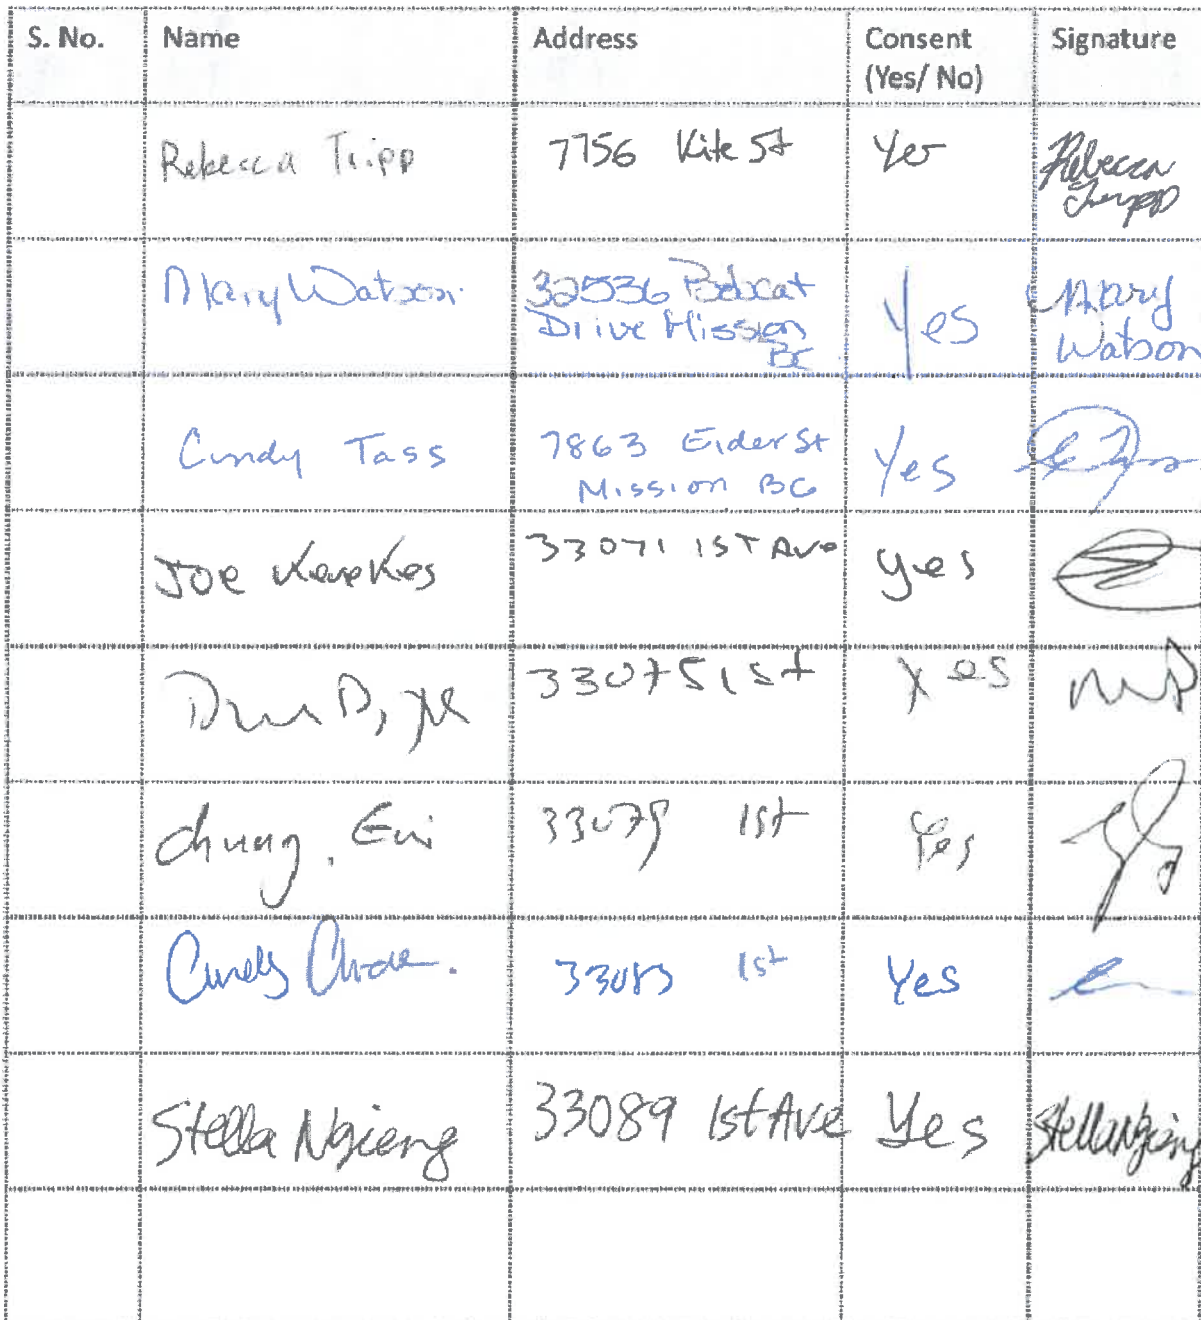 S. No. Name Address Consent Signature
(Yes/ No)
Rebecca Tripp 7756 Kite St Yes Rebecca
Tripp
Mary Watson 32536 Bobcat Yes Mary
Drive Mission Watson
BC
Cindy Tass 7863 Eider St Yes
Mission BC
Joe Kerekes 33071 1ST Ave yes
33075 1st Yes
Chung, 33079 1st Yes
Cindy 33083 1st Yes
Stella Ngieng 33089 1st Ave Yes Stella Ngieng